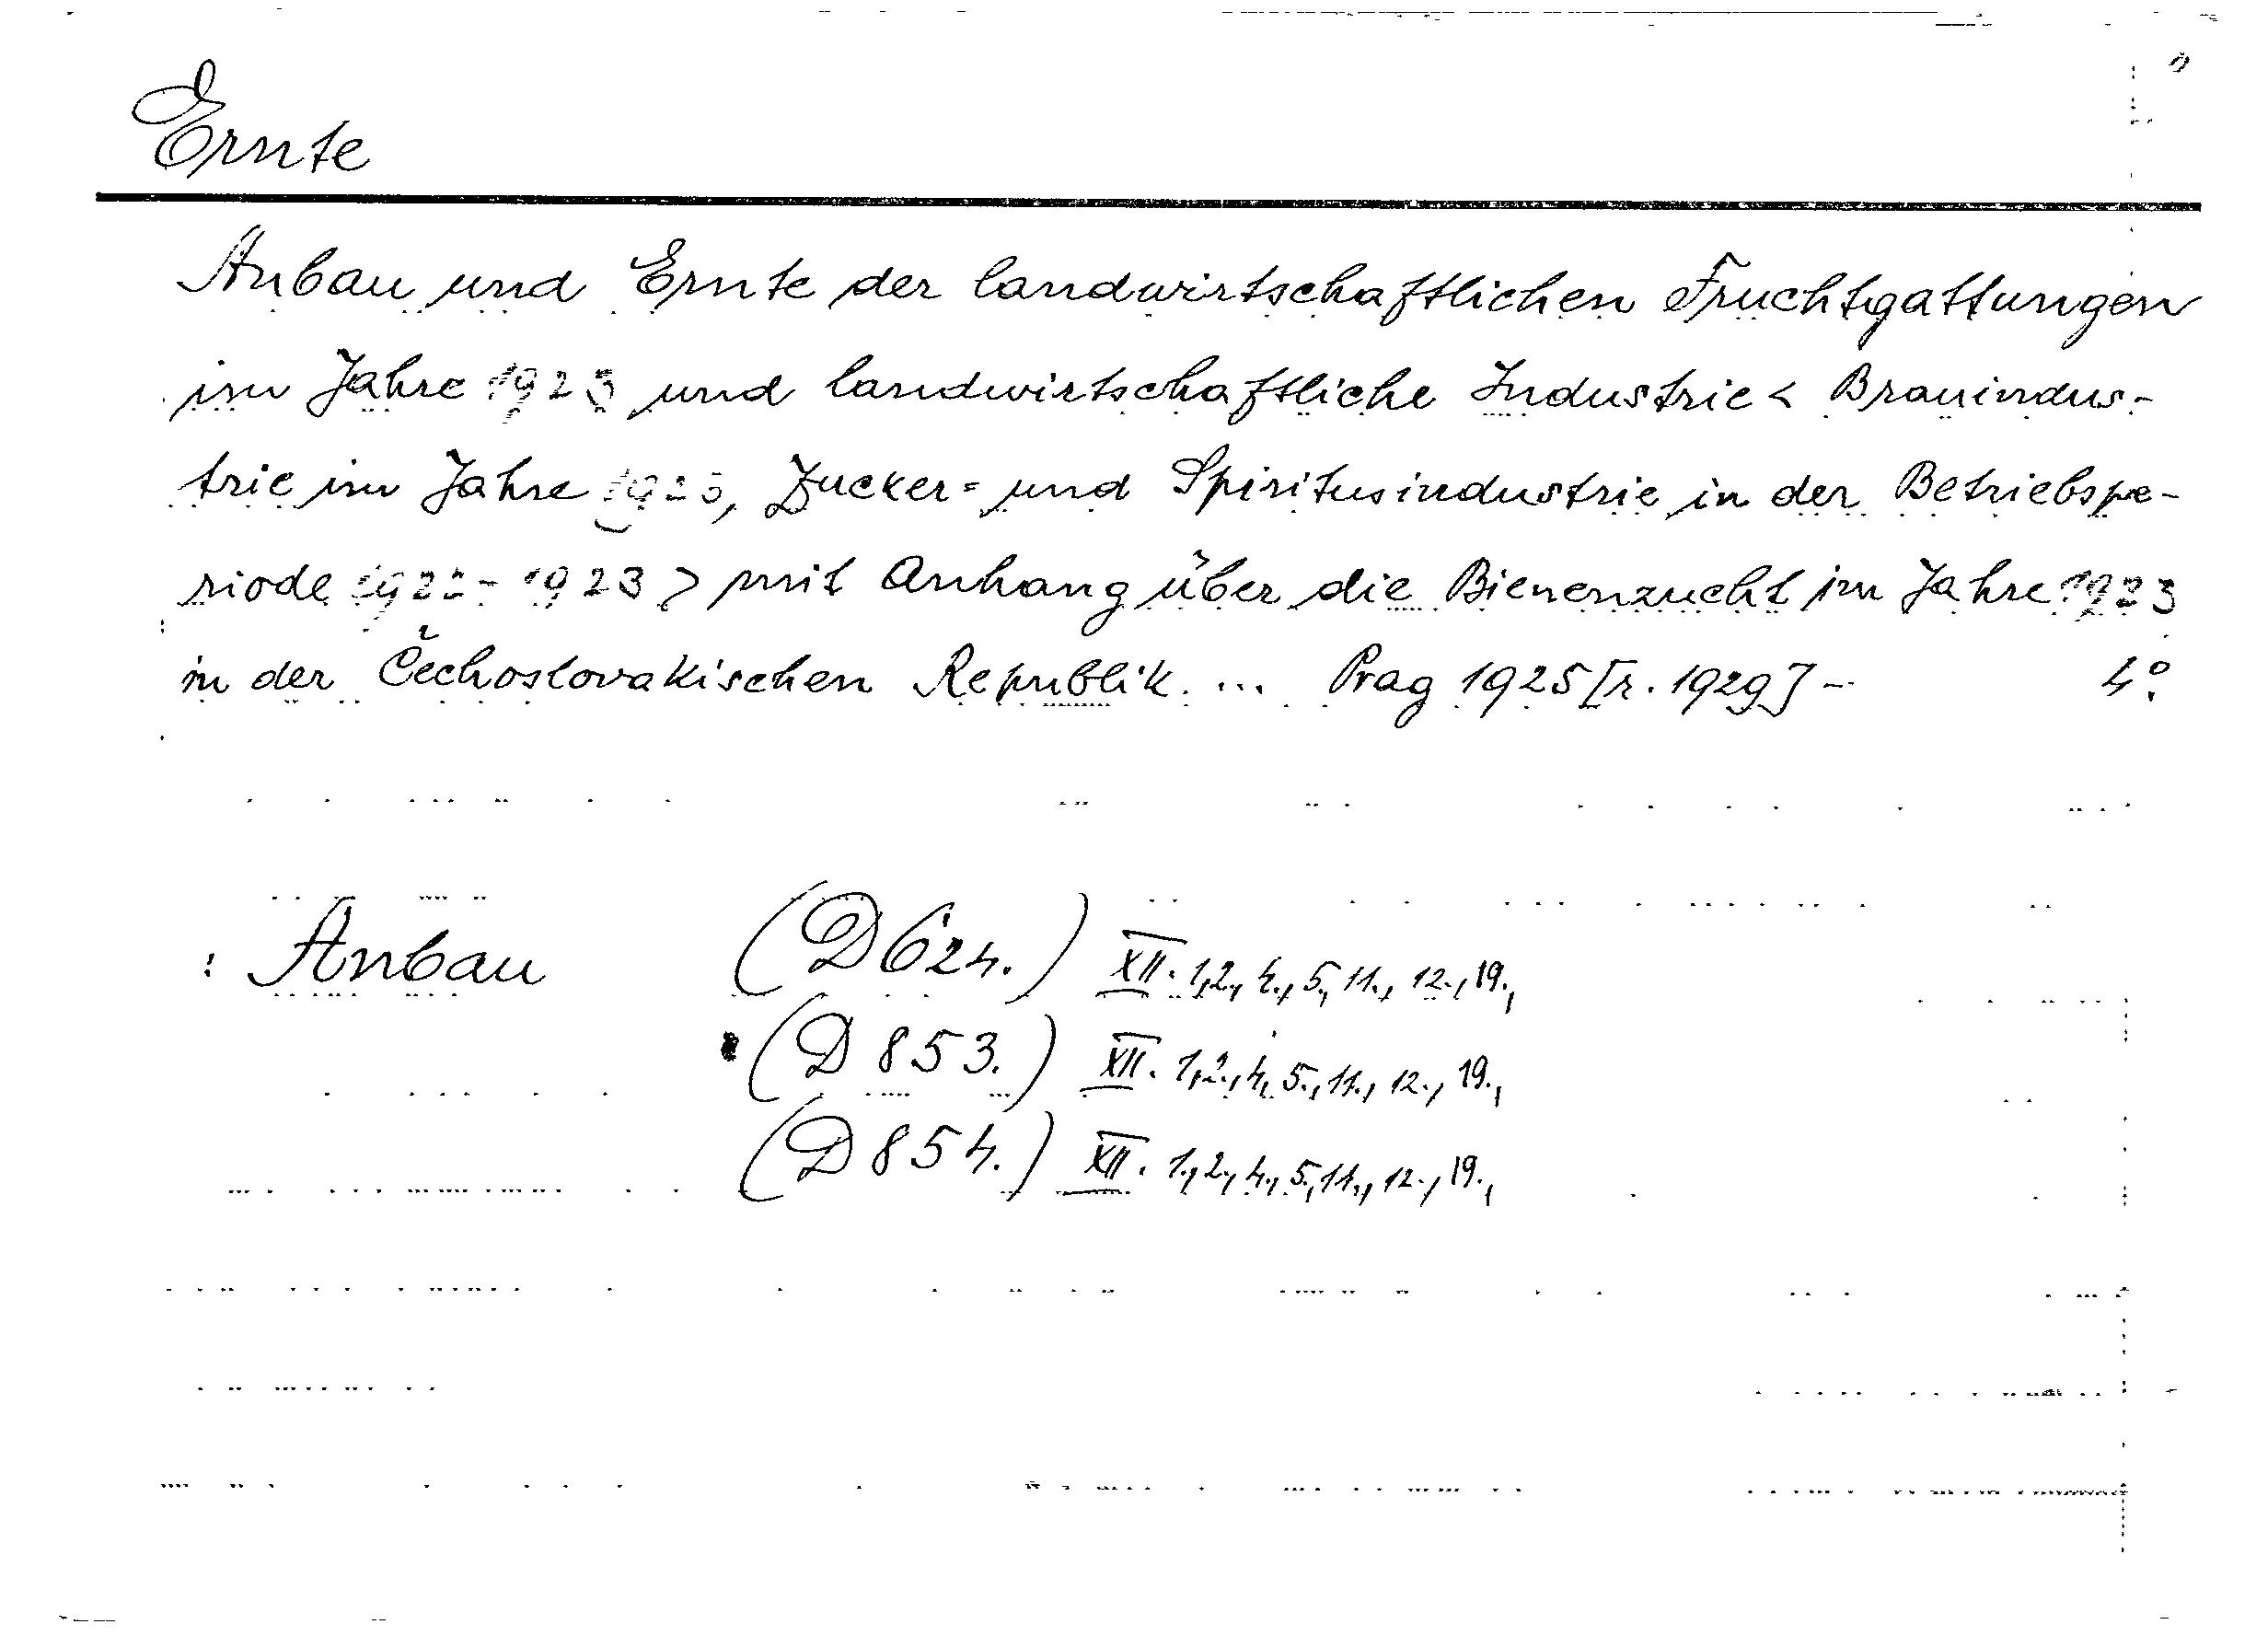 Ernte
Anbau und Ernte der landwirtschaftlichen Fruchtgattungen
im Jahre 1923 und landwirtschaftliche Industrie < Brauindus-
trie im Jahre 1923, Zucker= und Spiritusindustrie in der Betriebspe-
riode 1922-1923 > mit Anhang über die Bienenzucht im Jahre 1923
in der Čechoslovakischen Republik. ... Prag 1925 [r. 1929] - 4°.
: Anbau (D 624.) XII. 1., 2., 4., 5., 11., 12., 19.,
(D 853.) XII. 1., 2., 4., 5., 11., 12., 19.,
(D 854.) XII. 1., 2., 4., 5., 11., 12., 19.,